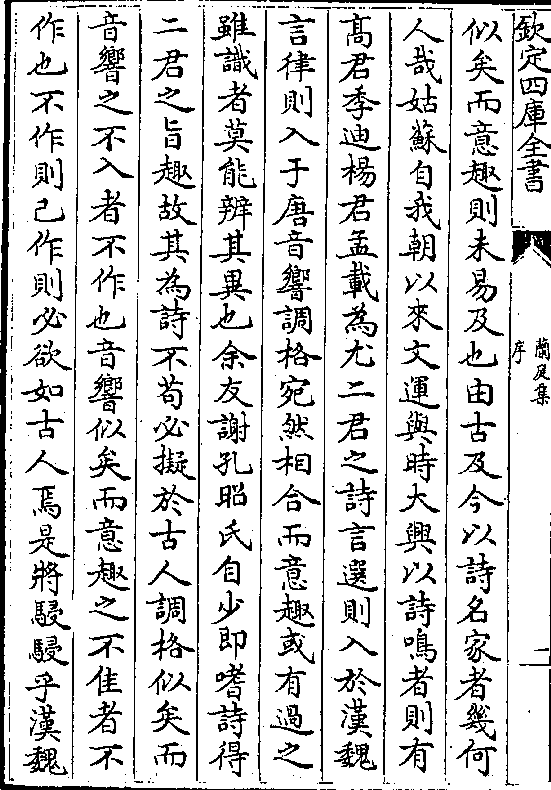 欽定四庫全書
蘭庭集
序
二
似矣而意趣則未易及也由古及今以詩名家者幾何
人哉姑蘇自我朝以來文運與時大興以詩鳴者則有
髙君季迪楊君孟載為尤二君之詩言選則入於漢魏
言律則入于唐音響調格宛然相合而意趣或有過之
雖識者莫能辨其異也余友謝孔昭氏自少即嗜詩得
二君之旨趣故其為詩不苟必擬於古人調格似矣而
音響之不入者不作也音響似矣而意趣之不佳者不
作也不作則已作則必欲如古人焉是將駸駸乎漢魏